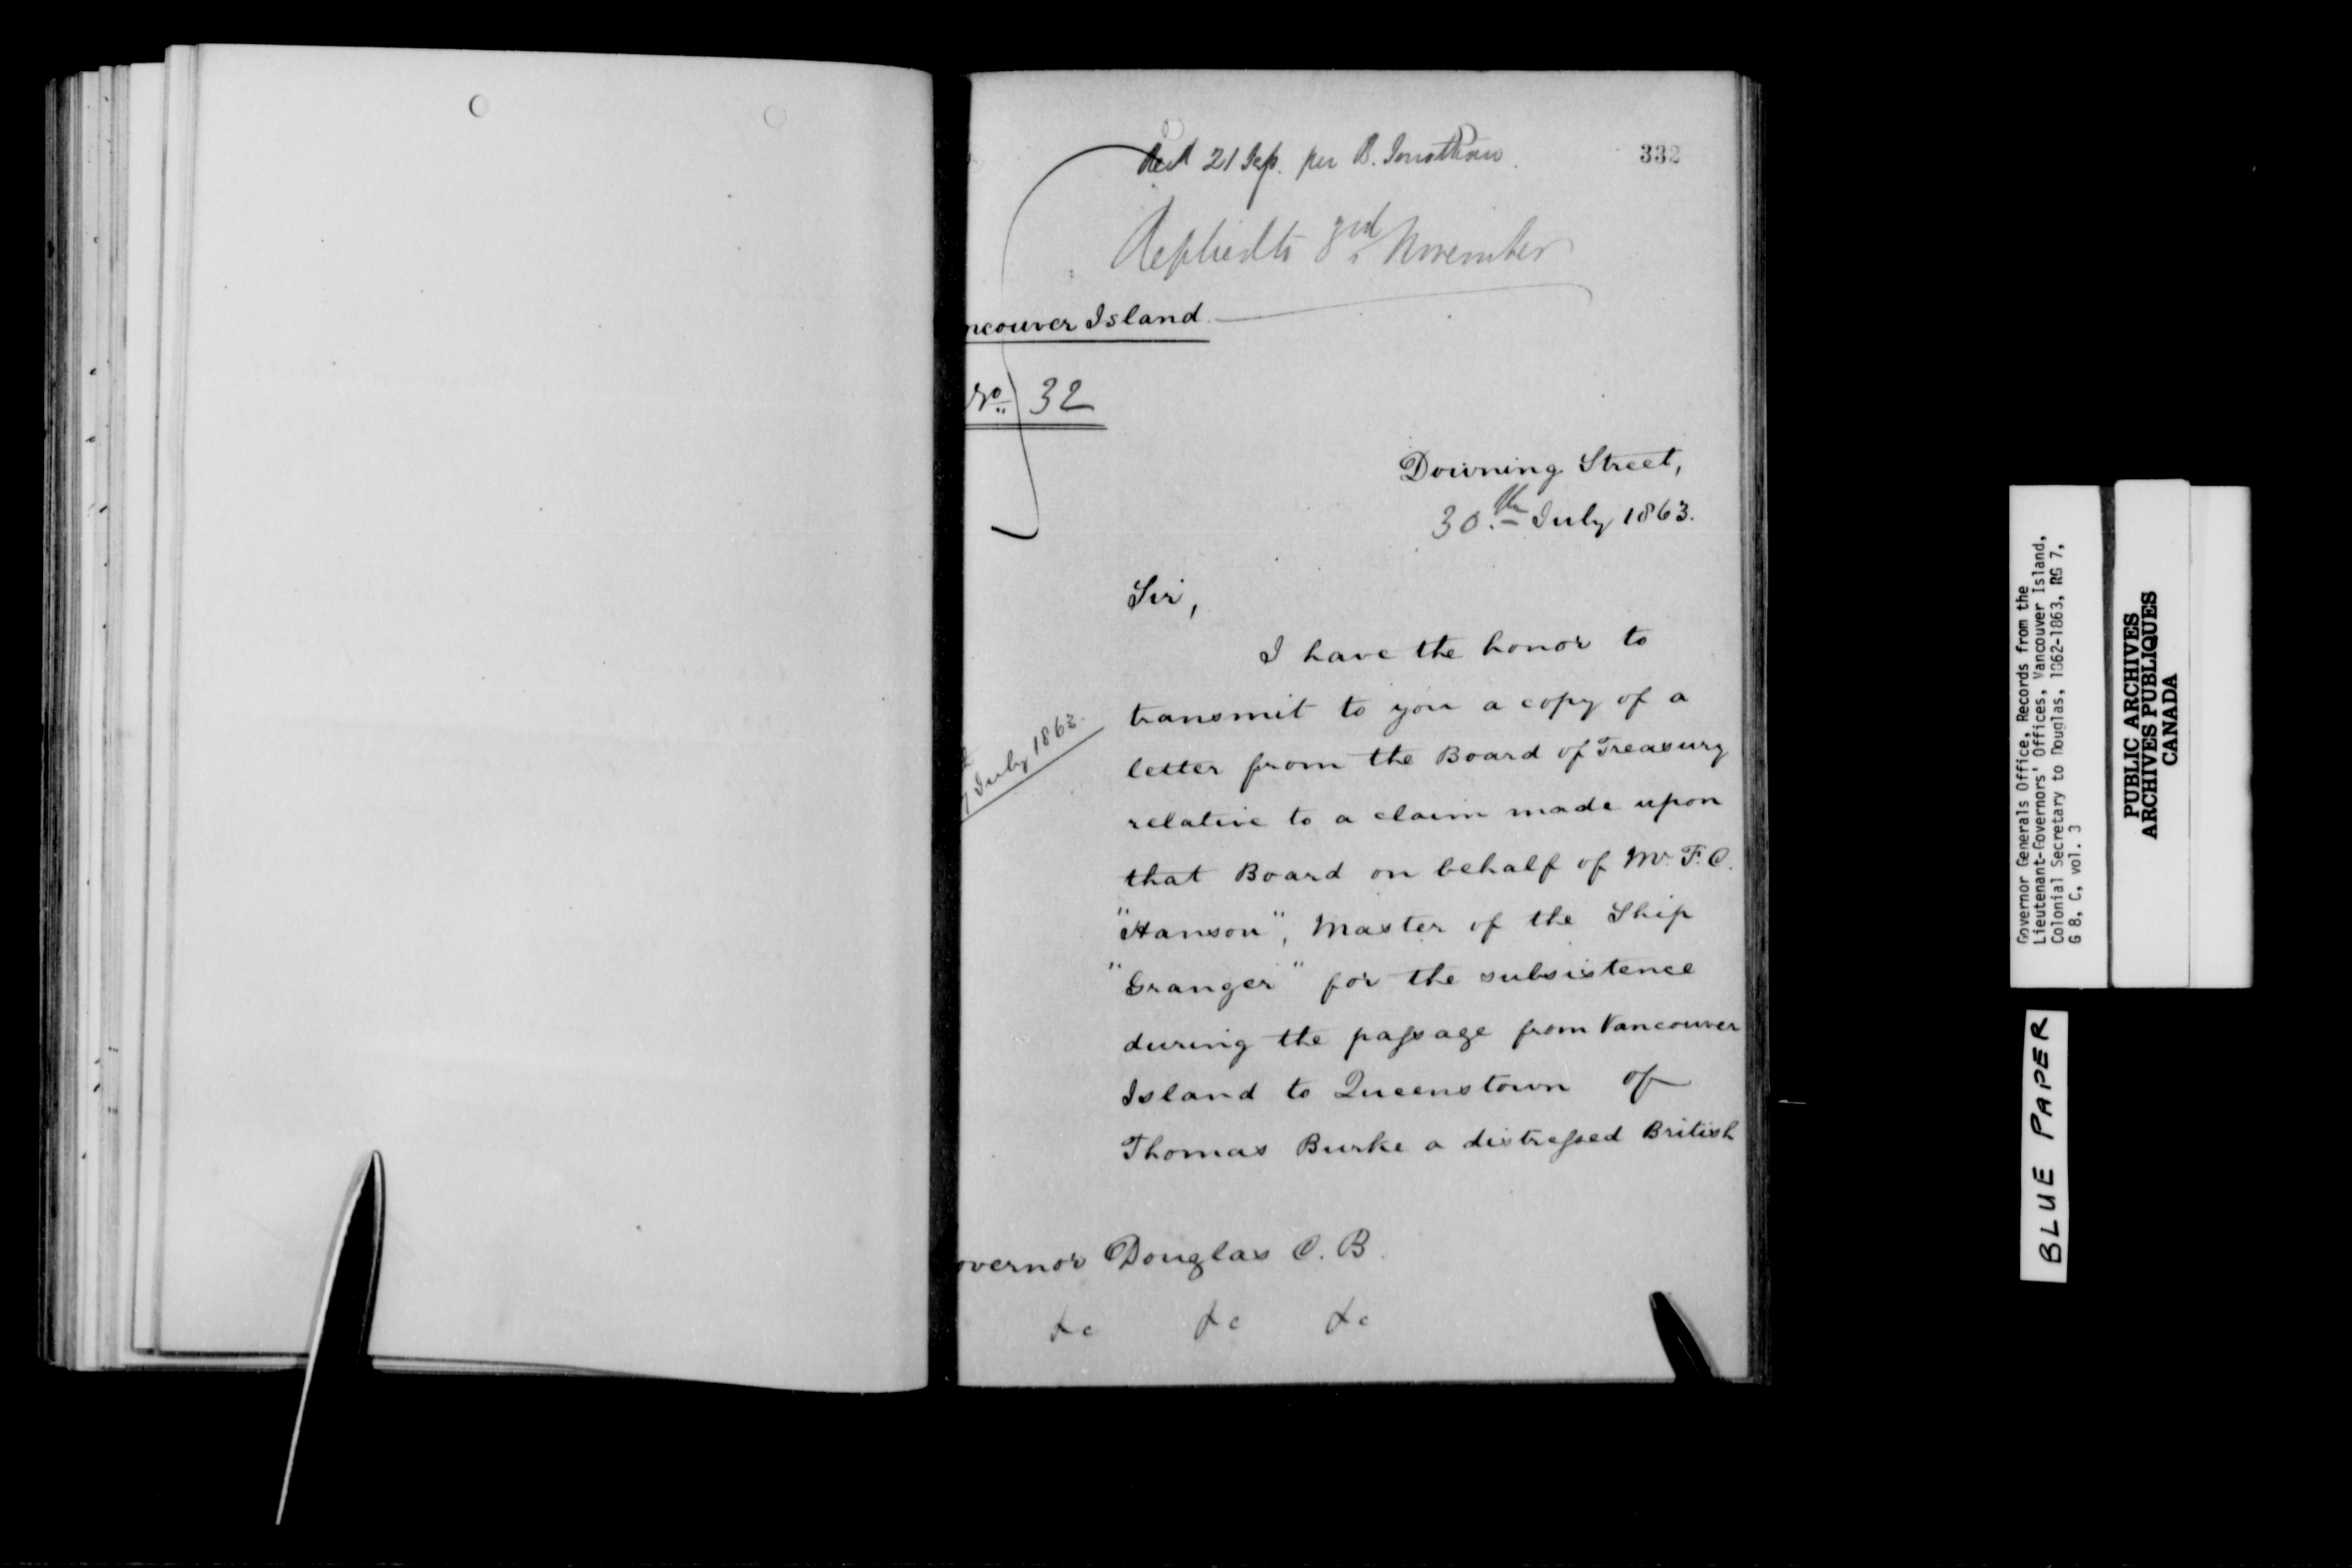 332
Recd 21 Sep. per B. Jonathan.
Replied to 3rd November
ncouver Island.
No. 32
Downing Street,
30th July 1863.
Sir,
I have the honor to
transmit to you a copy of a
July 1863.
letter from the Board of Treasury
relative to a claim made upon
that Board on behalf of Mr. F. C.
"Hanson", Master of the Ship
"Granger" for the subsistence
during the passage from Vancouver
Island to Queenstown of
Thomas Burke a distressed British
overnor Douglas C. B.
&c &c &c
Governor Generals Office, Records from the
Lieutenant-Governors' Offices, Vancouver Island,
Colonial Secretary to Douglas, 1862-1863, RG 7,
G 8, C, vol. 3
PUBLIC ARCHIVES
ARCHIVES PUBLIQUES
CANADA
BLUE PAPER